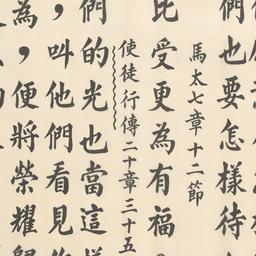 們也要怎樣待
馬太七章十二節
比受更為有福
使徒行傳二十章三十五
們的光也當這樣
，叫他們看見
為，便將榮耀歸